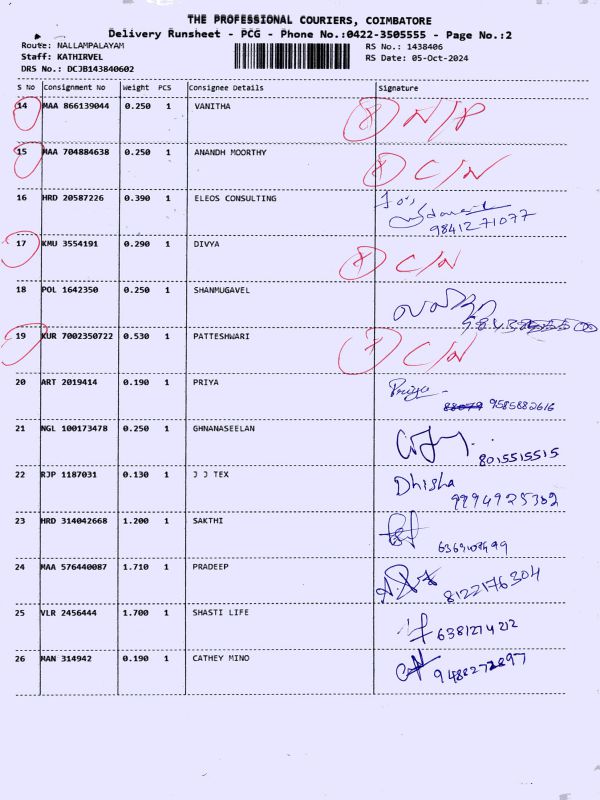 THE PROFESSIONAL COURIERS, COIMBATORE
Delivery Runsheet - PCG - Phone No.:0422-3505555 - Page No.:2
Route: NALLAMPALAYAM
RS No.: 1438406
Staff: KATHIRVEL
RS Date: 05-Oct-2024
DRS No.: DCJB143840602
S No Consignment No Weight PCS Consignee Details Signature
14 MAA 866139044 0.250 1 VANITHA N/P
15 MAA 704884638 0.250 1 ANANDH MOORTHY C/N
16 HRD 20587226 0.390 1 ELEOS CONSULTING
9841271077
17 KMU 3554191 0.290 1 DIVYA C/N
18 POL 1642350 0.250 1 SHANMUGAVEL
19 KUR 7002350722 0.530 1 PATTESHWARI C/N
20 ART 2019414 0.190 1 PRIYA Priya
9585882616
21 NGL 100173478 0.250 1 GHNANASEELAN
8015515515
22 RJP 1187031 0.130 1 J J TEX Dhisha
9994925382
23 HRD 314042668 1.200 1 SAKTHI
24 MAA 576440087 1.710 1 PRADEEP
8122176304
25 VLR 2456444 1.700 1 SHASTI LIFE
6381274212
26 MAN 314942 0.190 1 CATHEY MINO
9488272897